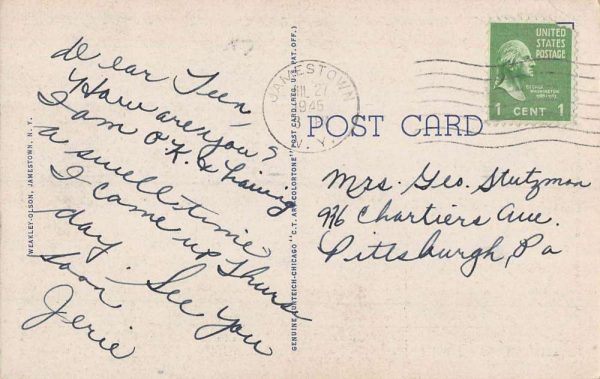 Dear Fern,
How are you?
I am O.K. & having
a swell time
I came up Thurs
day. See you
soon
Jerie
WEAKLEY-OLSON, JAMESTOWN, N. Y.
GENUINE CURTEICH-CHICAGO "C.T. ART-COLORTONE" POST CARD (REG. U.S. PAT. OFF.)
JAMESTOWN
JUL 27
1945
N.Y.
POST CARD
UNITED
STATES
POSTAGE
GEORGE
WASHINGTON
1 CENT 1
Mrs. Geo. Stutzman
916 Chartiers Ave.
Pittsburgh, Pa